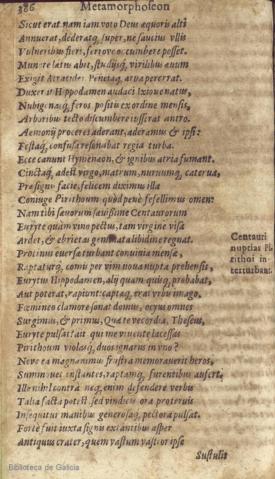 386 Metamorphoseon
Sicut erat nam iam voto Deus aequoris alti
Annuerat, dederatq; super, ne saucius vllis
Vulneribus fieri, ferrove occumbere posset.
Munere laetus abit, studijsq; virilibus aevum
Exigit Atracides Peneiaq; arva pererrat.
Duxerat Hippodamen audaci Ixione natus,
Nubigenasq; feros, positis ex ordine mensis,
Arboribus tecto discumbere iusserat antro.
Aemonij proceres aderant, aderamus & ipsi:
Festaq; confusa resonabat regia turba.
Ecce canunt Hymenaeon, & ignibus atria fumant.
Cinctaq; adest virgo, matrum, nuruumq; caterva,
Praesignis facie, felicem diximus illa
Coniuge Pirithoum quod pene fefellimus omen:
Nam tibi saevorum saevissime Centaurorum
Euryte quam vino pectus, tam virgine visa
Ardet, & ebrietas geminata libidine regnat.
Protinus eversae turbant convivia mensae,
Raptaturq; comis per vim nova nupta prehensis,
Eurytus Hippodamen, alij quam quisq; probabat,
Aut poterat, rapiunt: captaq; erat vrbis imago.
Foemineo clamore sonat domus, ocyus omnes
Surgimus, & primus, Quae te vecordia, Theseus,
Euryte pulsat ait qui me vivente lacessas
Pirithoum violasq; duos ignarus in vno?
Neve ea magnanimus frustra memoraverit heros,
Summovet instantes, raptamq; furentibus aufert,
Ille nihil contra neq; enim defendere verbis
Talia facta potest sed vindicis ora protervis
Insequitur manibus generosaq; pectora pulsat.
Forte fuit iuxta signis extantibus asper
Antiquus crater, quem vastum vastior ipse
Sustulit
Centauri
nuptias Pi
rithoi in
terturbant.
Biblioteca de Galicia